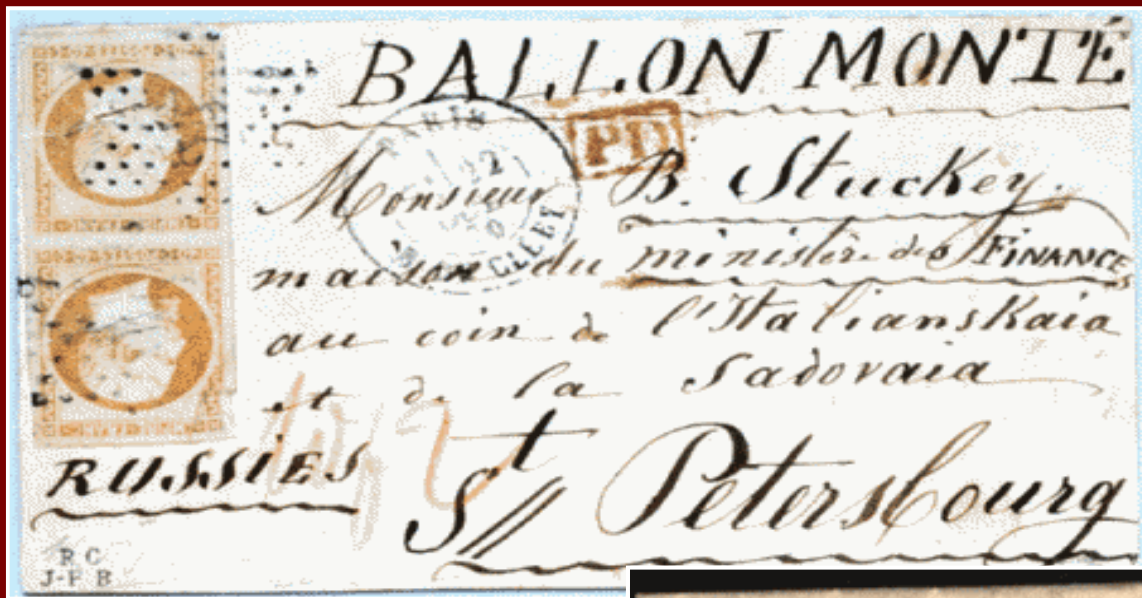 BALLON MONTÉ
PARIS
22
PD
Monsieur B. Stuckey.
maison du ministère des FINANCES
au coin de l'Italianskaia
et de la Sadovaia
St Petersbourg
RUSSIES
R C
J-F B